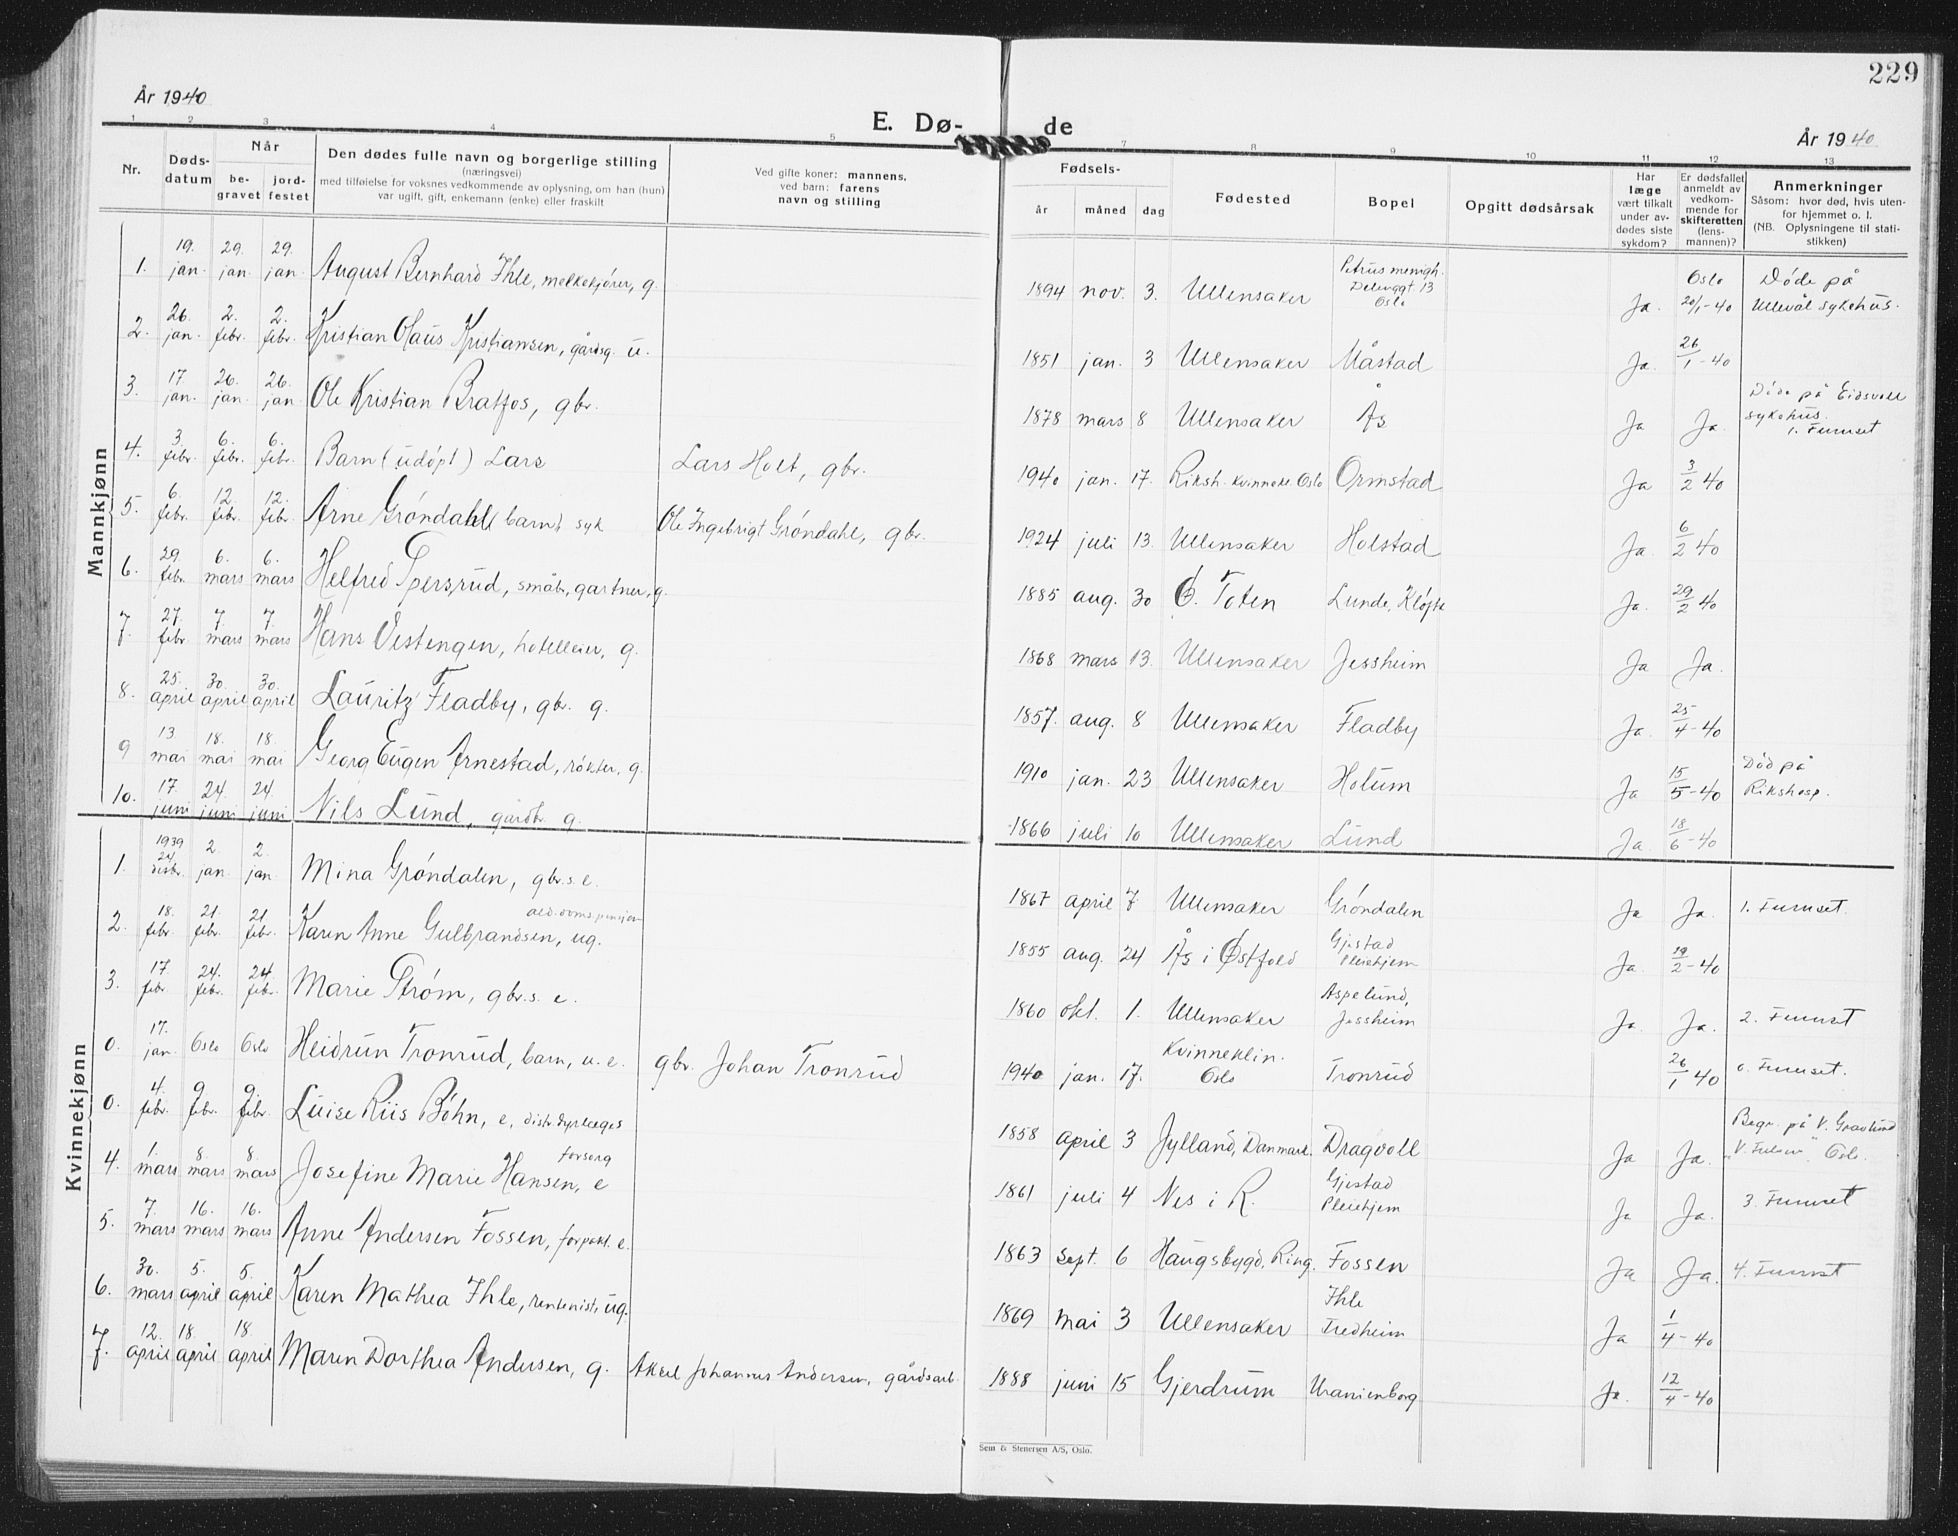 229
År 1940
E. Dø-
de
År 1940
1 2 3 4 5 7 8 9 10 11 12 13
Nr.
Døds-
datum
Når
be-
gravet
jord-
festet
Den dødes fulle navn og borgerlige stilling
(næringsvei)
med tilføielse for voksnes vedkommende av oplysning, om han (hun)
var ugift, gift, enkemann (enke) eller fraskilt
Ved gifte koner: mannens,
ved barn: farens
navn og stilling
Fødsels-
år måned dag
Fødested
Bopel
Opgitt dødsårsak
Har
læge
vært tilkalt
under av-
dødes siste
sykdom?
Er dødsfallet
anmeldt av
vedkom-
mende for
skifteretten
(lens-
mannen)?
Anmerkninger
Såsom: hvor død, hvis uten-
for hjemmet o. l.
(NB. Oplysningene til stati-
stikken)
Mannkjønn
1. 19. jan. 29. jan. 29. jan. August Bernhard Ihle, melkekjører, g. 1894 nov. 3. Ullensaker Petrus menigh. Delenggt. 13 Oslo Ja. Oslo 20/1-40 Døde på Ullevål sykehus.
2. 26. jan. 2. febr. 2. febr. Kristian Olaus Kristiansen, gårdsg. u. 1851 jan. 3 Ullensaker Måstad Ja. 26/1-40
3. 17. jan. 26. jan. 26. jan. Ole Kristian Bratfos, gbr. 1878 mars 8 Ullensaker Ås Ja Ja. Døde på Eidsvoll sykehus. 1. Furuset
4. 3. febr. 6. febr. 6. febr. Barn (udøpt) Lars Lars Holt, gbr. 1940 jan. 17. Riksh. kvinnekl. Oslo Ormstad Ja 3/2 40
5. 6. febr. 12. febr. 12. febr. Arne Grøndahl barn, syk Ole Ingebrigt Grøndahl, gbr. 1924 juli 13. Ullensaker Holstad Ja. 6/2 40
6. 29. febr. 6. mars 6. mars Helfred Spersrud, småbr, gartner, g. 1885 aug. 30 Ø. Toten Lunde, Kløfta Ja. 29/2 40
7. 27. febr. 7. mars 7. mars Hans Vestengen, hotelleier, g. 1868 mars 13. Ullensaker Jessheim Ja Ja.
8. 25. april 30. april 30. april Lauritz Fladby, gbr. g. 1857. aug. 8 Ullensaker Fladby Ja. 25/4-40
9 13. mai 18. mai 18. mai Georg Eugen Arnestad, røkter, g. 1910 jan. 23 Ullensaker Holum Ja 15/5-40 Død på Rikshosp.
10. 17. juni 24. juni 24. juni Nils Lund, gårdbr. g. 1866 juli 10 Ullensaker Lund Ja. 18/6-40
Kvinnekjønn
1. 1939 24. desbr. 2. jan. 2. jan. Mina Grøndalen, gbr.s. e. 1867 april 7 Ullensaker Grøndalen Ja Ja. 1. Furuset.
2. 18. febr. 21. febr. 21. febr. Karen Anne Gulbrandsen, ug. 1855 aug. 24 Ås i Østfold Gjestad Pleiehjem Ja. 19/2-40
3. 17. febr. 24. febr. 24. febr. Marie Strøm, gbr.s. e. 1860 okt. 1. Ullensaker Aspelund, Jessheim Ja. Ja. 2. Furuset
0. 17. jan. Oslo Oslo Heidrun Tronrud, barn, u. e. gbr. Johan Tronrud 1940 jan. 17. Kvinneklin. Oslo Tronrud 26/1 40 0. Furuset.
0. 4. febr. 9. febr. 9. febr. Luise Riis Bøhn, e. distr.dyrlæges 1858 april 3 Jylland, Danmark. Dragvoll Ja Ja. Begr. på V. Gravlund Oslo.
4. 1. mars 8. mars 8. mars Josefine Marie Hansen, e forsorg 1861 juli 4 Nes i R. Gjestad Pleiehjem Ja Ja. 3. Furuset
5. 7. mars 16. mars 16. mars Anne Andersen Fossen, forpakt. e. 1863 sept. 6 Haugsbygd, Ring. Fossen Ja Ja. 4. Furuset
6. 30. mars 5. april 5. april Karen Mathea Ihle, rentenist, ug. 1869 mai 3 Ullensaker Ihle Fredheim Ja 1/4-40
7. 12. april 18. april 18. april Maren Dorthea Andersen, g. Aksel Johannes Andersen, gårdsarb. 1888 juni 15 Gjerdrum Uranienborg Ja. 12/4-40
Sem & Stenersen A/S, Oslo.